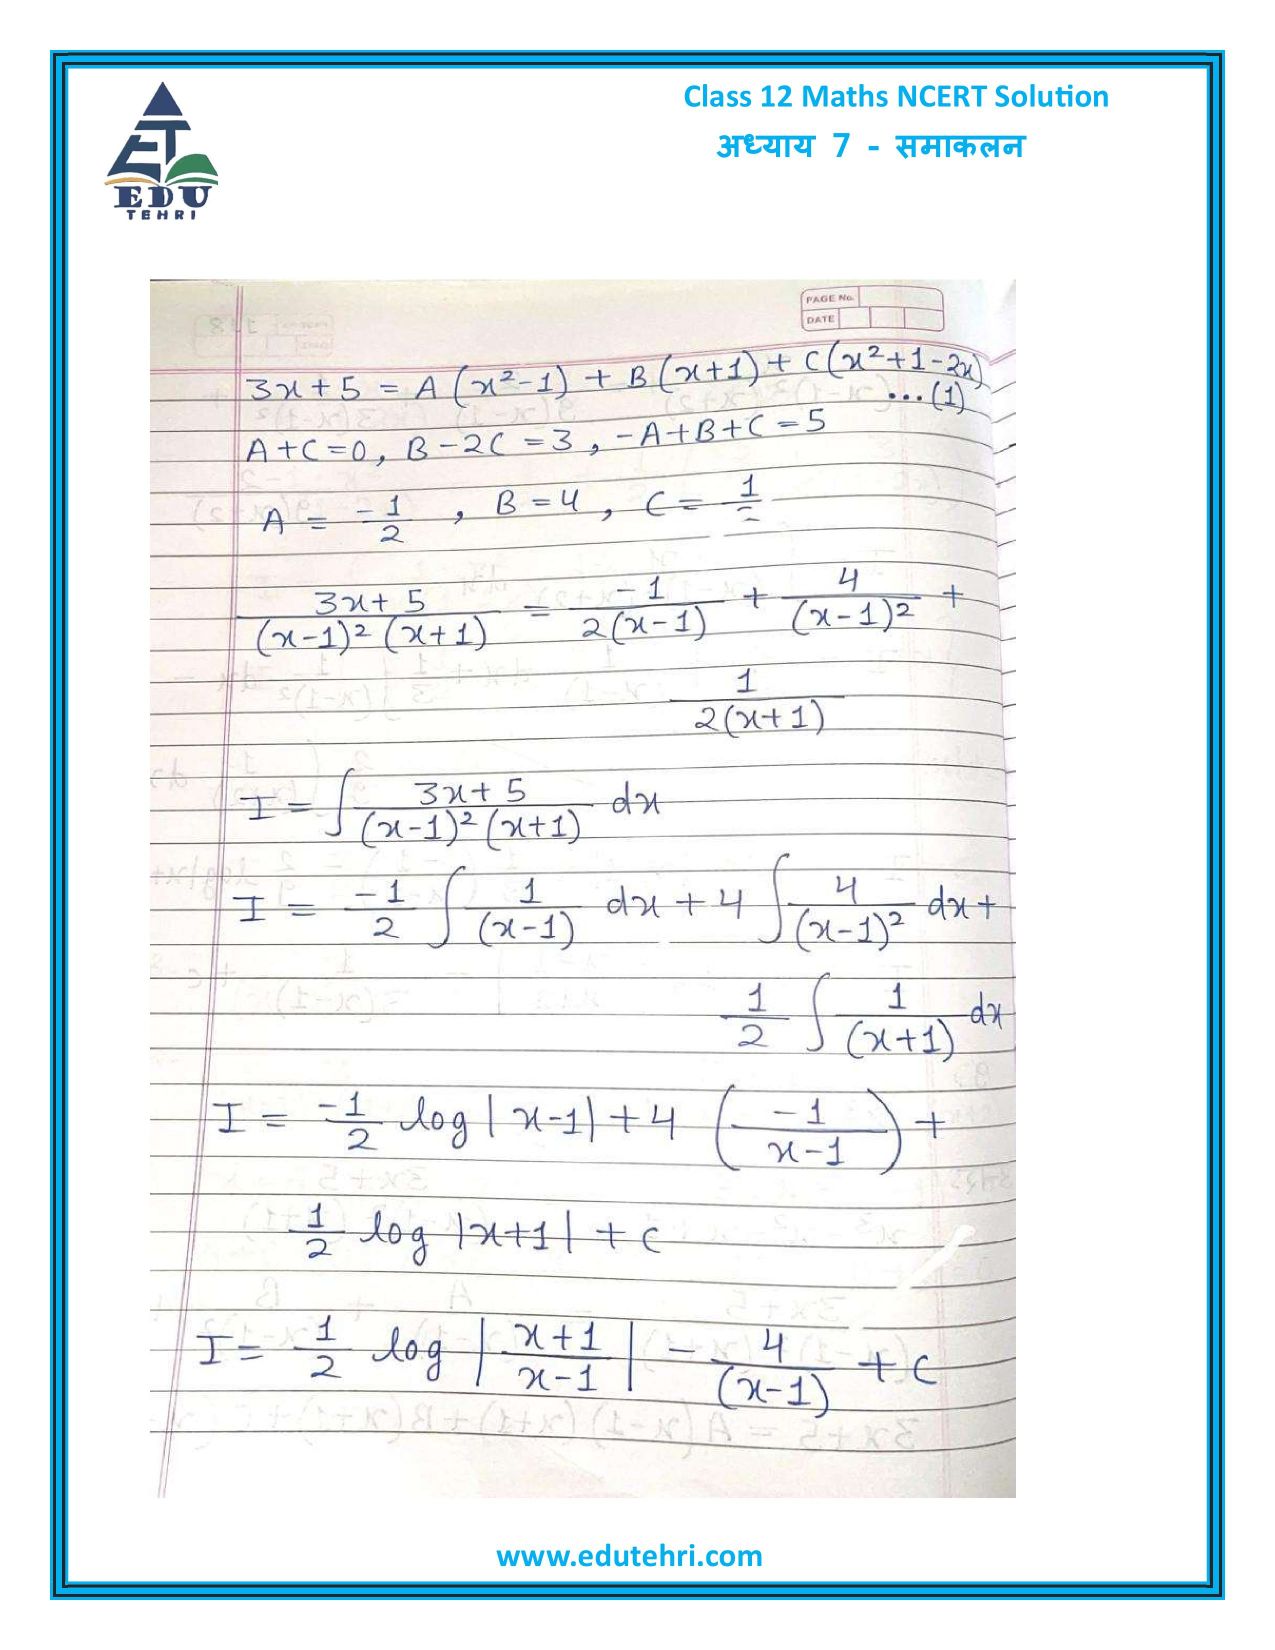 Class 12 Maths NCERT Solution
अध्याय 7 - समाकलन
EDU
TEHRI
PAGE No.
DATE
3x+5 = A(x²-1) + B(x+1) + C(x²+1-2x)
...(1)
A+C=0, B-2C=3, -A+B+C=5
A = -1/2 , B=4, C= 1/
3x+5/(x-1)²(x+1) = -1/2(x-1) + 4/(x-1)² +
1/2(x+1)
I = ∫ 3x+5/(x-1)²(x+1) dx
I = -1/2 ∫ 1/(x-1) dx + 4 ∫ 4/(x-1)² dx +
1/2 ∫ 1/(x+1) dx
I = -1/2 log|x-1| + 4 (-1/x-1) +
1/2 log|x+1| + C
I = 1/2 log |x+1/x-1| - 4/(x-1) + C
www.edutehri.com